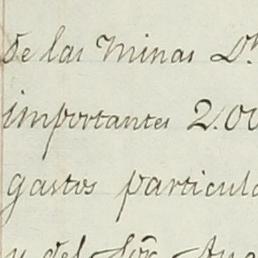 de las Minas D.
importantes 2.00
gastos particula
y del Sor. Ang